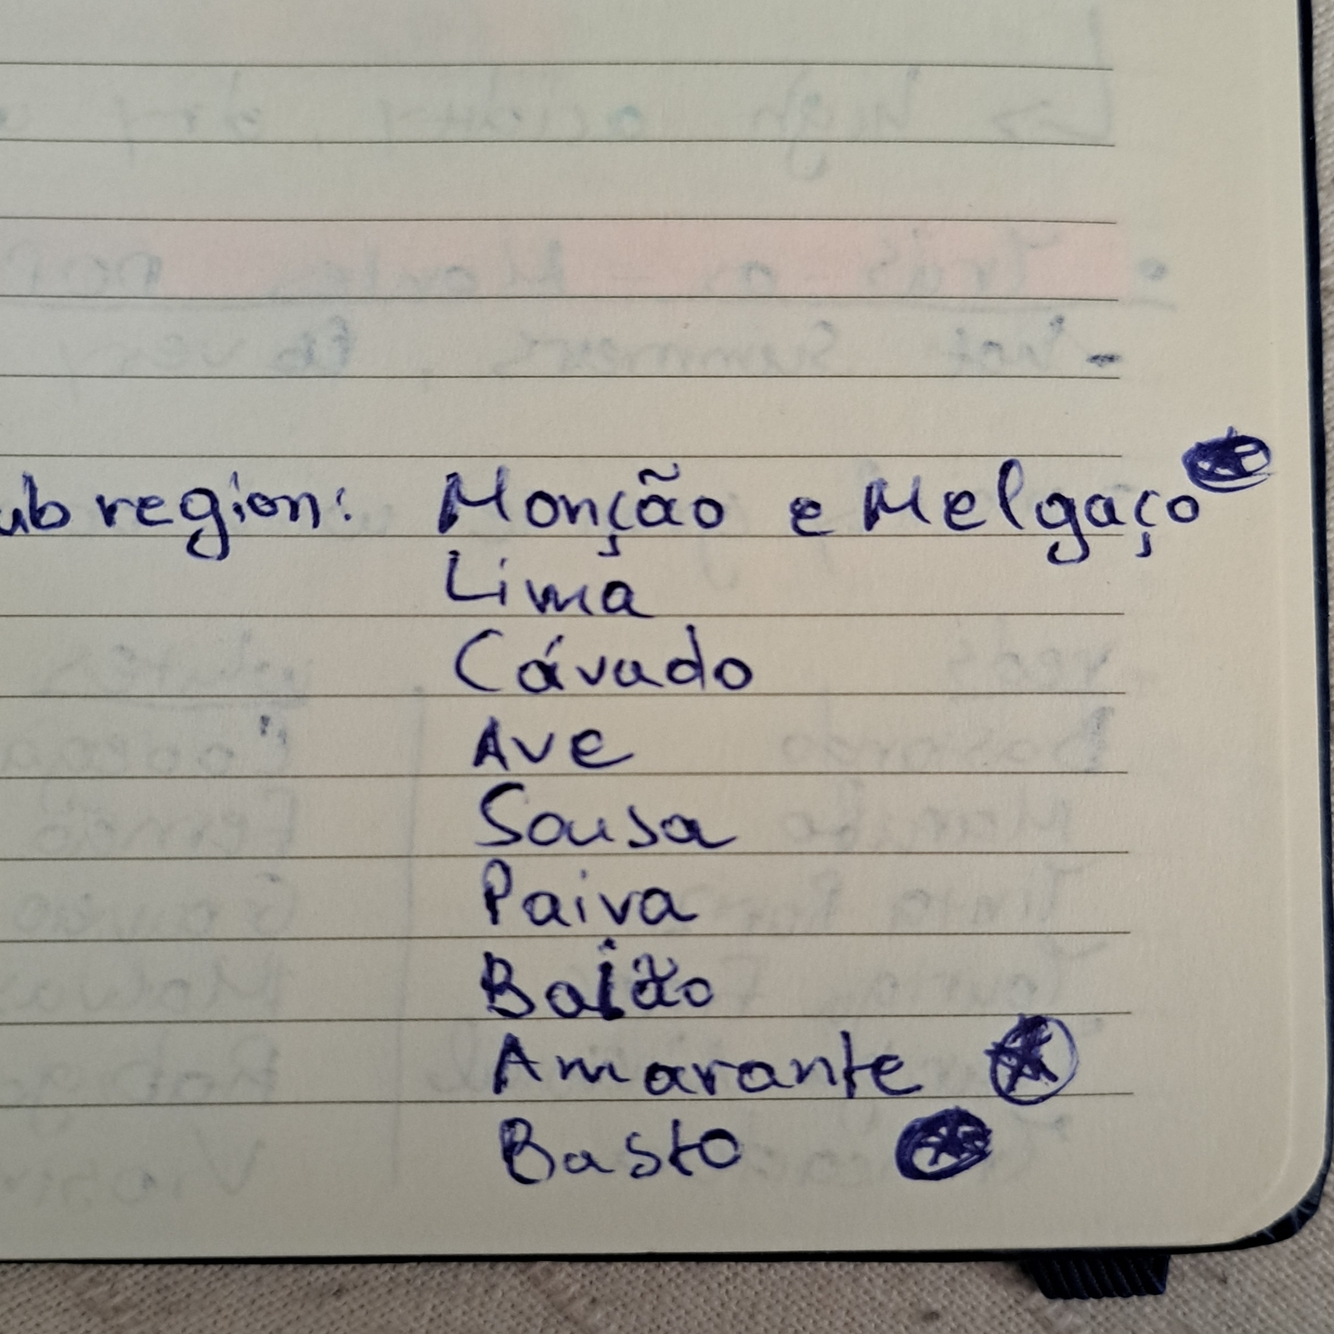 ub region: Monção e Melgaço
Lima
Cávado
Ave
Sousa
Paiva
Baião
Amarante
Basto